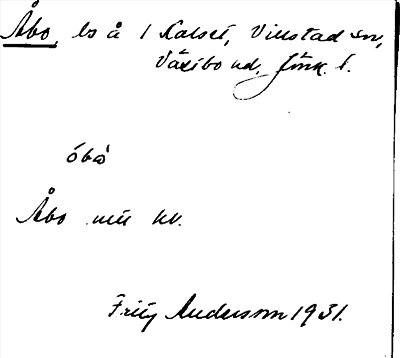 Åbo, ls å 1 Kalset, Villstad sn,
Västbo hd. Jönk. l.
óbò
Åbo mtl kv.
Fritz Anderson 1931.